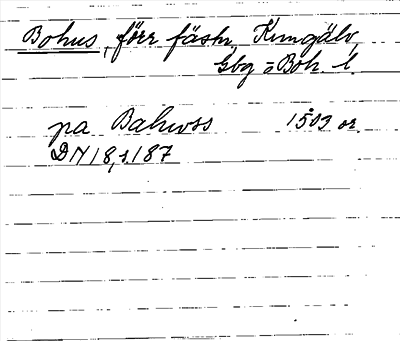 Bohus, förr fästn, Kungälv,
Gbg = Boh. l.
pa Bahwss 1503 or
DN 18, s. 187